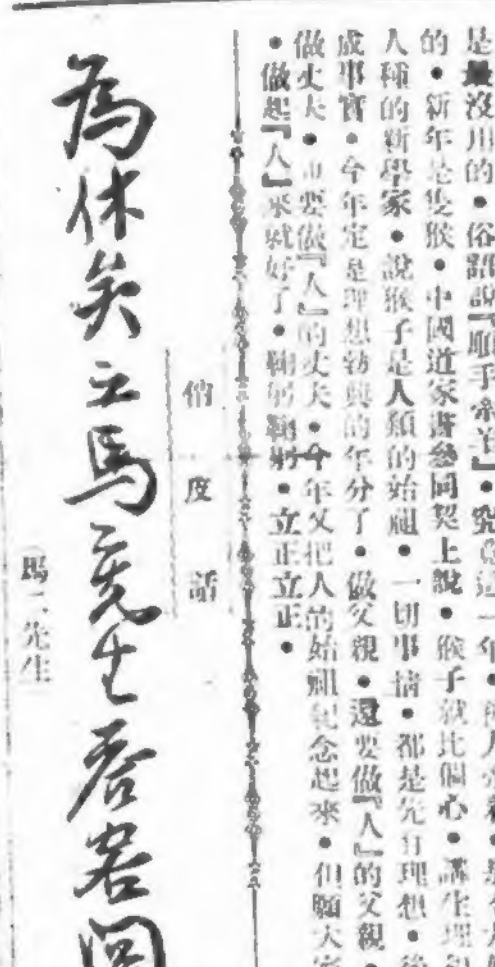 是最沒用的•俗語說『順手牽羊』•究竟這一年•
的•新年是隻猴•中國道家書參同契上說•猴子就比個心•講生理
人種的新學家•說猴子是人類的始祖•一切事情•都是先有理想•後
成事實•今年定是理想勃興的年分了•做父親•還要做『人』的父親•
做丈夫•也要做『人』的丈夫•今年又把人的始祖紀念起來•但願大家
•做起『人』來就好了•鞠躬鞠躬•立正立正•
俏皮話
為休矣立馬先生答客問
馬二先生